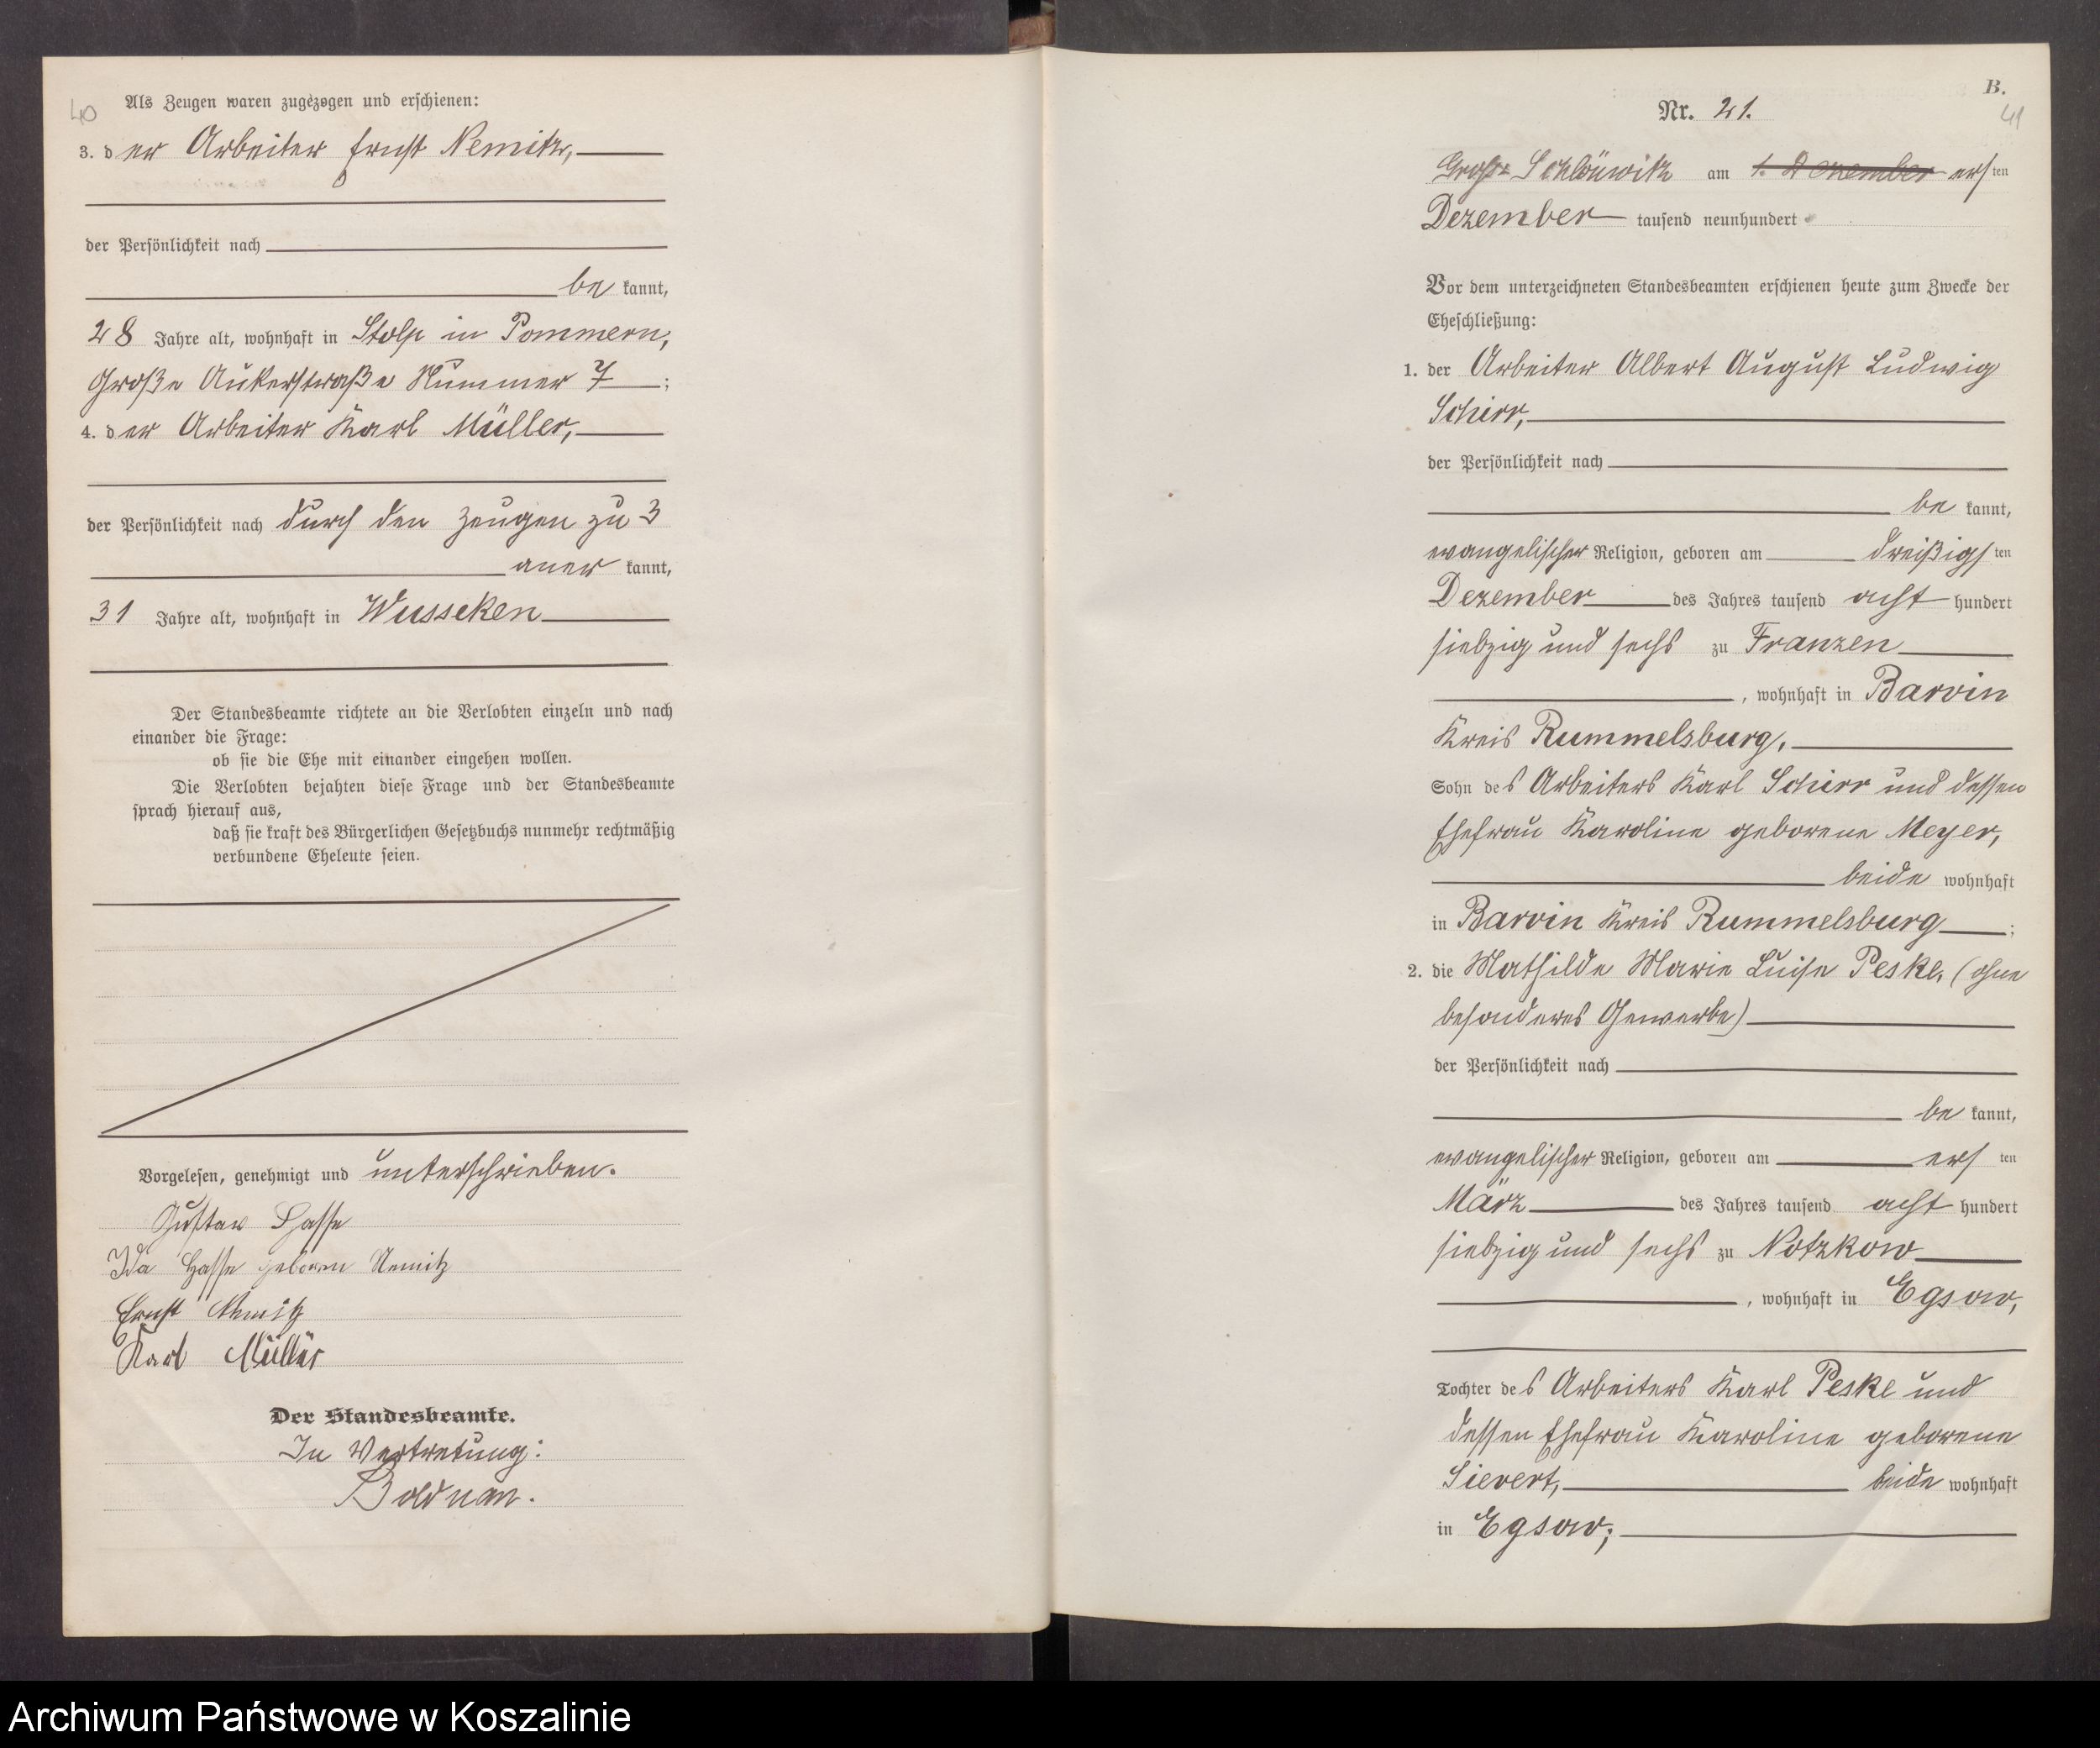 40
Als Zeugen waren zugezogen und erschienen:
3. der Arbeiter Ernst Nemitz,
der Persönlichkeit nach
be kannt,
28 Jahre alt, wohnhaft in Stolp in Pommern,
Große Aukerstraße Nummer 7 ;
4. der Arbeiter Karl Müller,
der Persönlichkeit nach durch den Zeugen zu 3
aner kannt,
31 Jahre alt, wohnhaft in Wusseken
Der Standesbeamte richtete an die Verlobten einzeln und nach
einander die Frage:
ob sie die Ehe mit einander eingehen wollen.
Die Verlobten bejahten diese Frage und der Standesbeamte
sprach hierauf aus,
daß sie kraft des Bürgerlichen Gesetzbuchs nunmehr rechtmäßig
verbundene Eheleute seien.
Vorgelesen, genehmigt und unterschrieben.
Gustav Hasse
Ida Hasse geboren Nemitz
Ernst Nemitz
Karl Müller
Der Standesbeamte.
In Vertretung:
B.
41
Nr. 21.
Groß Schlönwitz am 1. Dezember ersten
Dezember tausend neunhundert
Vor dem unterzeichneten Standesbeamten erschienen heute zum Zwecke der
Eheschließung:
1. der Arbeiter Albert August Ludwig
Schirr,
der Persönlichkeit nach
be kannt,
evangelischer Religion, geboren am dreißigsten
Dezember des Jahres tausend acht hundert
siebzig und sechs zu Franzen
, wohnhaft in Barvin
Kreis Rummelsburg,
Sohn des Arbeiters Karl Schirr und dessen
Ehefrau Karoline geborene Meyer,
beide wohnhaft
in Barvin Kreis Rummelsburg ;
2. die Mathilde Marie Luise Peske, (ohne
besonderes Gewerbe)
der Persönlichkeit nach
be kannt,
evangelischer Religion, geboren am ersten
März des Jahres tausend acht hundert
siebzig und sechs zu Notzkow
, wohnhaft in Egsow,
Tochter des Arbeiters Karl Peske und
dessen Ehefrau Karoline geborene
Sievert, beide wohnhaft
in Egsow;
Archiwum Państwowe w Koszalinie